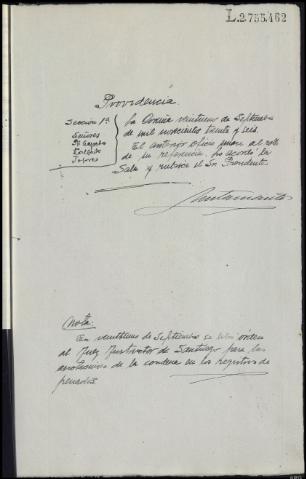 L.2.755.462
Providencia.
Sección 1ª
Señores
La Coruña veintiuno de Septiembre
de mil novecientos treinta y seis.
El anterior oficio únase al rollo
de su referencia, lo acordó la
Sala y rubrica el Sr. Presidente.
Nota.
En veintiuno de Septiembre se libró orden
al Juez Instructor de Santiago para las
anotaciones de la condena en los registros de
penados.